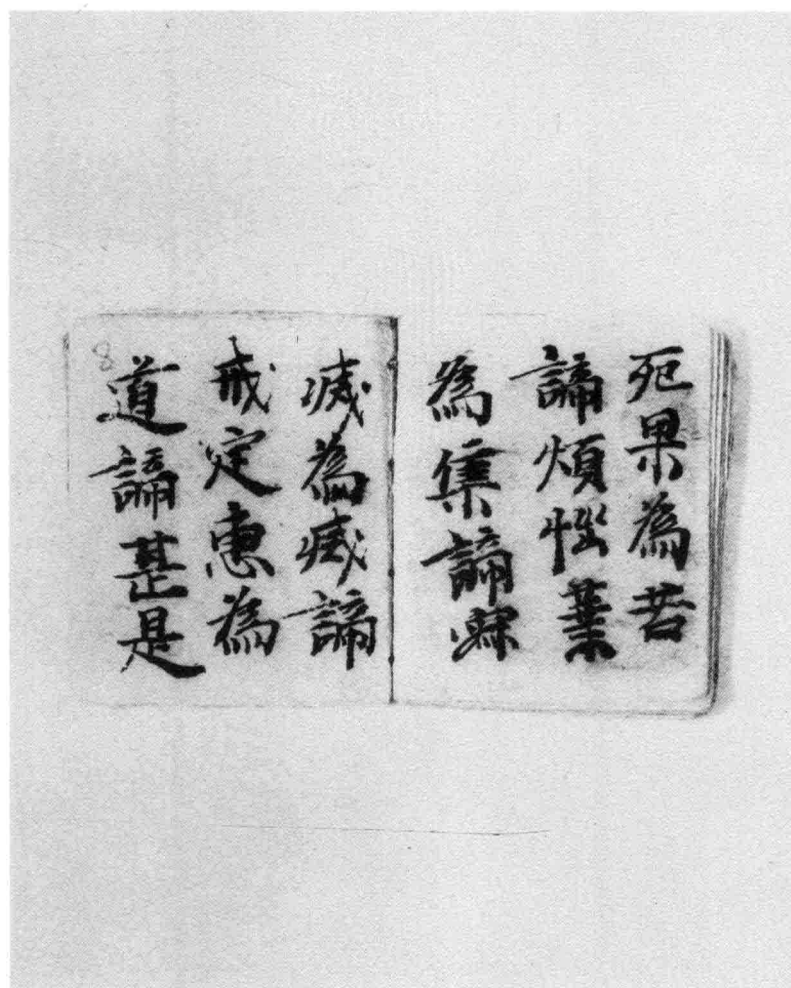 死果為苦
諦煩惱業
為集諦寂
滅為滅諦
戒定惠為
道諦甚是
8